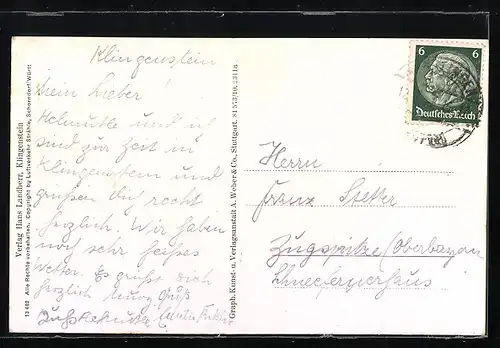 Klingenstein
Mein Lieber!
Helmutle und ich
sind zur Zeit in
Klingenstein und
grüßen dich recht
herzlich. Wir haben
noch sehr heißes
Wetter. Es grüßt dich
herzlich
Verlag Hans Landherr, Klingenstein
13402 Alle Rechte vorbehalten. Copyright by Luftverkehr Strähle, Schorndorf/Württ
Graph. Kunst- u. Verlagsanstalt A. Weber & Co., Stuttgart.
6 6
Deutsches Reich
Herrn
Franz Stetter
Zugspitze (Oberbayern
Schneefernerhaus